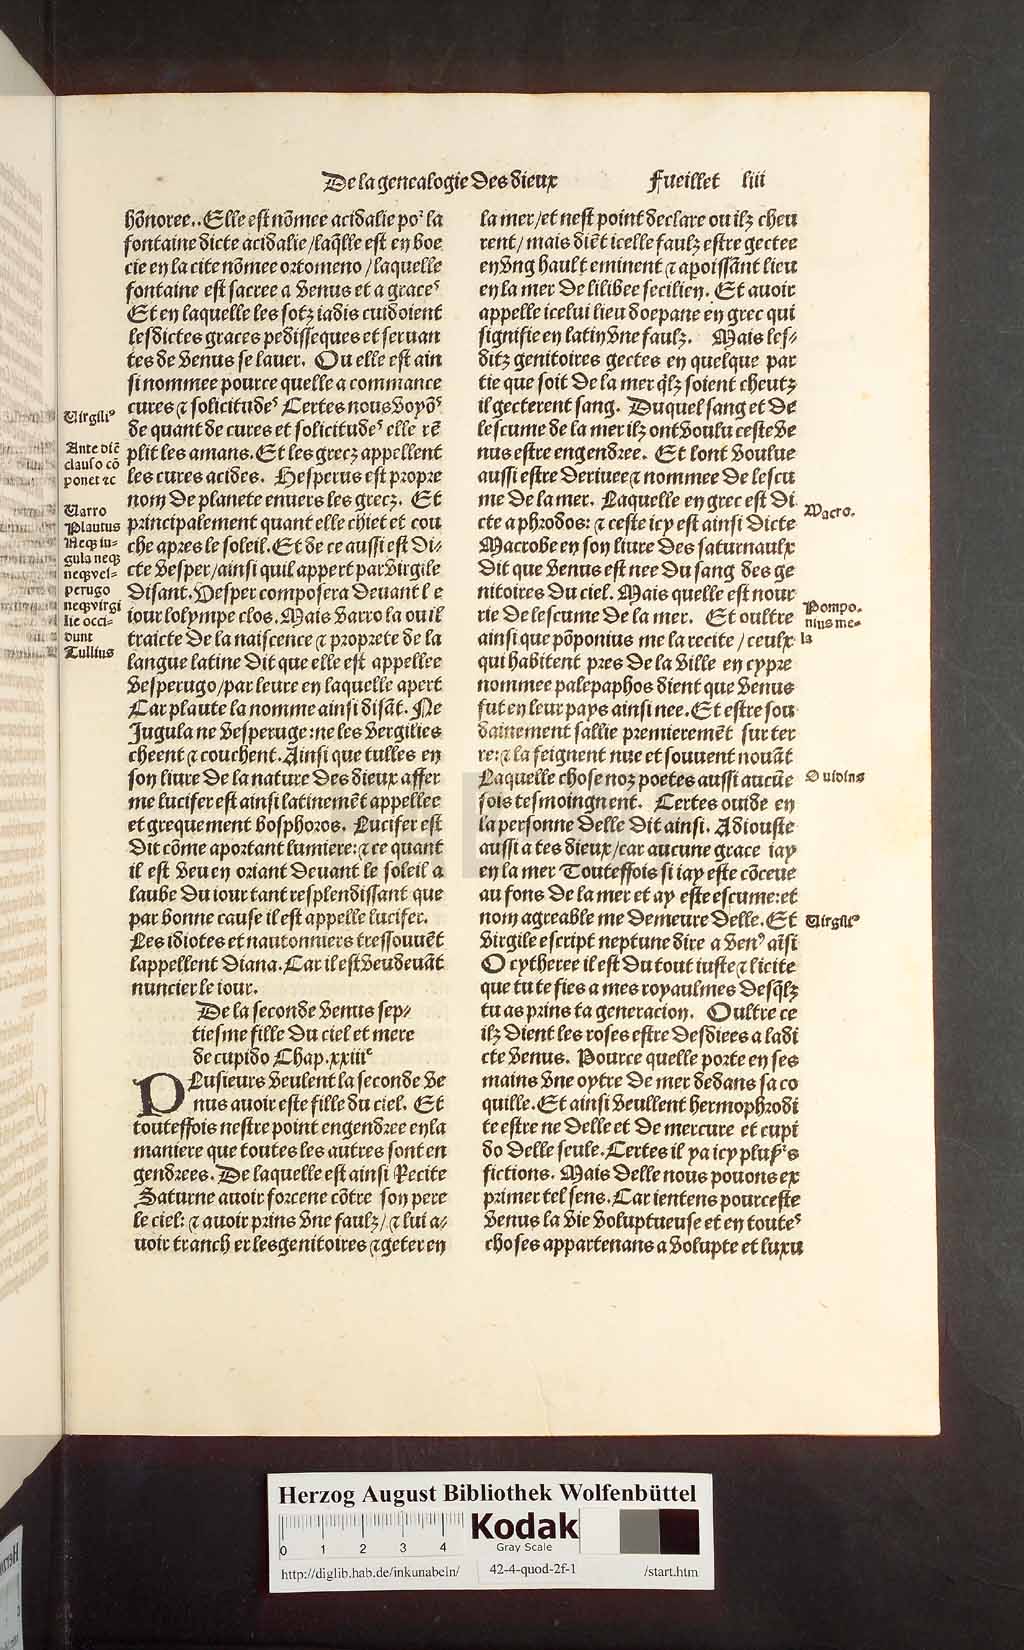 De la genealogie des dieux
Fueillet liii
hõnoree.. Elle est nõmee acidalie poᷣ la
fontaine dicte acidalie/laq̃lle est en boe
cie en la cite nõmee ortomeno/laquelle
fontaine est sacree a venus et a graceˢ
Et en laquelle les sotz iadis cuidoient
lesdictes graces pedisseques et seruan
tes de venus se lauer. Ou elle est ain
si nommee pource quelle a commance
cures ⁊ solicitudeˢ Certes nous voyõˢ
de quant de cures et solicitudeˢ elle rẽ
plit les amans. Et les grecz appellent
les cures acides. Hesperus est propre
nom de planete enuers les grecz. Et
principalement quant elle chiet et cou
che apres le soleil. Et de ce aussi est di⸗
cte vesper/ainsi quil appert par virgile
disant. Hesper composera deuant l e
iour lolympe clos. Mais varro la ou il
traicte de la naiscence ⁊ proprete de la
langue latine dit que elle est appellee
vesperugo/par leure en laquelle apert
Car plaute la nomme ainsi disãt. Ne
Jugula ne vesperuge:ne les vergilies
cheent ⁊ couchent. Ainsi que tulles en
son liure de la nature des dieux affer
me lucifer est ainsi latinemẽt appellee
et grequement bosphoros. Lucifer est
dit cõme aportant lumiere:⁊ ce quant
il est veu en oriant deuant le soleil a
laube du iour tant resplendissant que
par bonne cause il est appelle lucifer.
Les idiotes et nautonniers tressouuẽt
lappellent diana. Car il est veu deuãt
nuncier le iour.
De la seconde venus sep⸗
tiesme fille du ciel et mere
de cupido Chap. xxiiiᵉ
PLusieurs veulent la seconde ve
nus auoir este fille du ciel. Et
touteffois nestre point engendree en la
maniere que toutes les autres sont en
gendrees. De laquelle est ainsi Recite
Saturne auoir forcene cõtre son pere
le ciel: ⁊ auoir prins vne faulz/⁊ lui a⸗
uoir tranch er les genitoires ⁊ geter en
la mer/et nest point declare ou ilz cheu
rent/mais diẽt icelle faulz estre gectee
en vng hault eminent ⁊ apoissãnt lieu
en la mer de lilibee secilien. Et auoir
appelle icelui lieu doepane en grec qui
signifie en latin vne faulz. Mais les⸗
ditz genitoires gectes en quelque par
tie que soit de la mer q̃lz soient cheutz
il gecterent sang. Duquel sang et de
lescume de la mer ilz ont voulu ceste ve
nus estre engendree. Et lont voulue
aussi estre deriuee ⁊ nommee de lescu
me de la mer. Laquelle en grec est di
cte aphrodos: ⁊ ceste icy est ainsi dicte
Macrobe en son liure des saturnaulx
dit que venus est nee du sang des ge
nitoires du ciel. Mais quelle est nour
rie de lescume de la mer. Et oultre
ainsi que põponius me la recite/ceulx
qui habitent pres de la ville en cypre
nommee palepaphos dient que venus
fut en leur pays ainsi nee. Et estre sou
dainement sallie premieremẽt sur ter
re:⁊ la feignent nue et souuent nouãt
Laquelle chose noz poetes aussi aucũe
fois tesmoingnent. Certes ouide en
la personne delle dit ainsi. Adiouste
aussi a tes dieux/car aucune grace iay
en la mer Touteffois si iay este cõceue
au fons de la mer et ay este escume:et
nom agreable me demeure delle. Et
virgile escript neptune dire a venꝰ aĩsi
O cytheree il est du tout iuste ⁊ licite
que tu te fies a mes royaulmes desq̃lz
tu as prins ta generacion. Oultre ce
ilz dient les roses estre desdiees a ladi
cte venus. Pource quelle porte en ses
mains vne oytre de mer dedans sa co
quille. Et ainsi veullent hermophrodi
te estre ne delle et de mercure et cupi
do delle seule. Certes il ya icy plusᷣs
fictions. Mais delle nous pouons ex
primer tel sens. Car ientens pour ceste
venus la vie voluptueuse et en touteˢ
choses appartenans a volupte et luxu
Virgiliꝰ
Ante diẽ
clauso cõ
ponet ⁊c
Varro
Plautus
Neqꝫ iu⸗
gula neqꝫ
neqꝫ vel⸗
perugo
neqꝫ virgi
lie occi⸗
dunt
Tullius
Macro.
Pompo.
nius me⸗
la
Ouidius
Virgiliꝰ
Herzog August Bibliothek Wolfenbüttel
0 1 2 3 4
Kodak
Gray Scale
http://diglib.hab.de/inkunabeln/
42-4-quod-2f-1
/start.htm